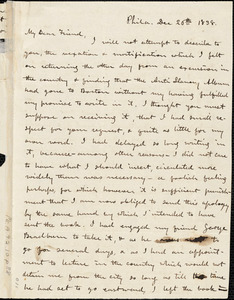 Phila. Dec 26th 1838.
My Dear Friend, I will not attempt to describe to
you, the vexation & mortification which I felt
on returning the other day from an excursion in
the country & finding that the Anti Slavery Album
had gone to Boston without my having fulfilled
my promise to write in it. I thought you must
suppose on receiving it, that I had so soon
forgot your request, & quite as little for my
own word. I had delayed so long writing in
it because among other reasons I did not care
to have what I should insert, circulated more
widely than was necessary in so public
perhaps, for which however it is sufficient punish-
ment that I am now obliged to send this apology
by the same hand by which I intended to have
sent the book. I had engaged my friend George
Benson to take it, & as he
to go for several days, & as I had an appoint-
ment to lecture in the country which would not
return me from the city so long as till the time
he had set to go eastward, I left the book in